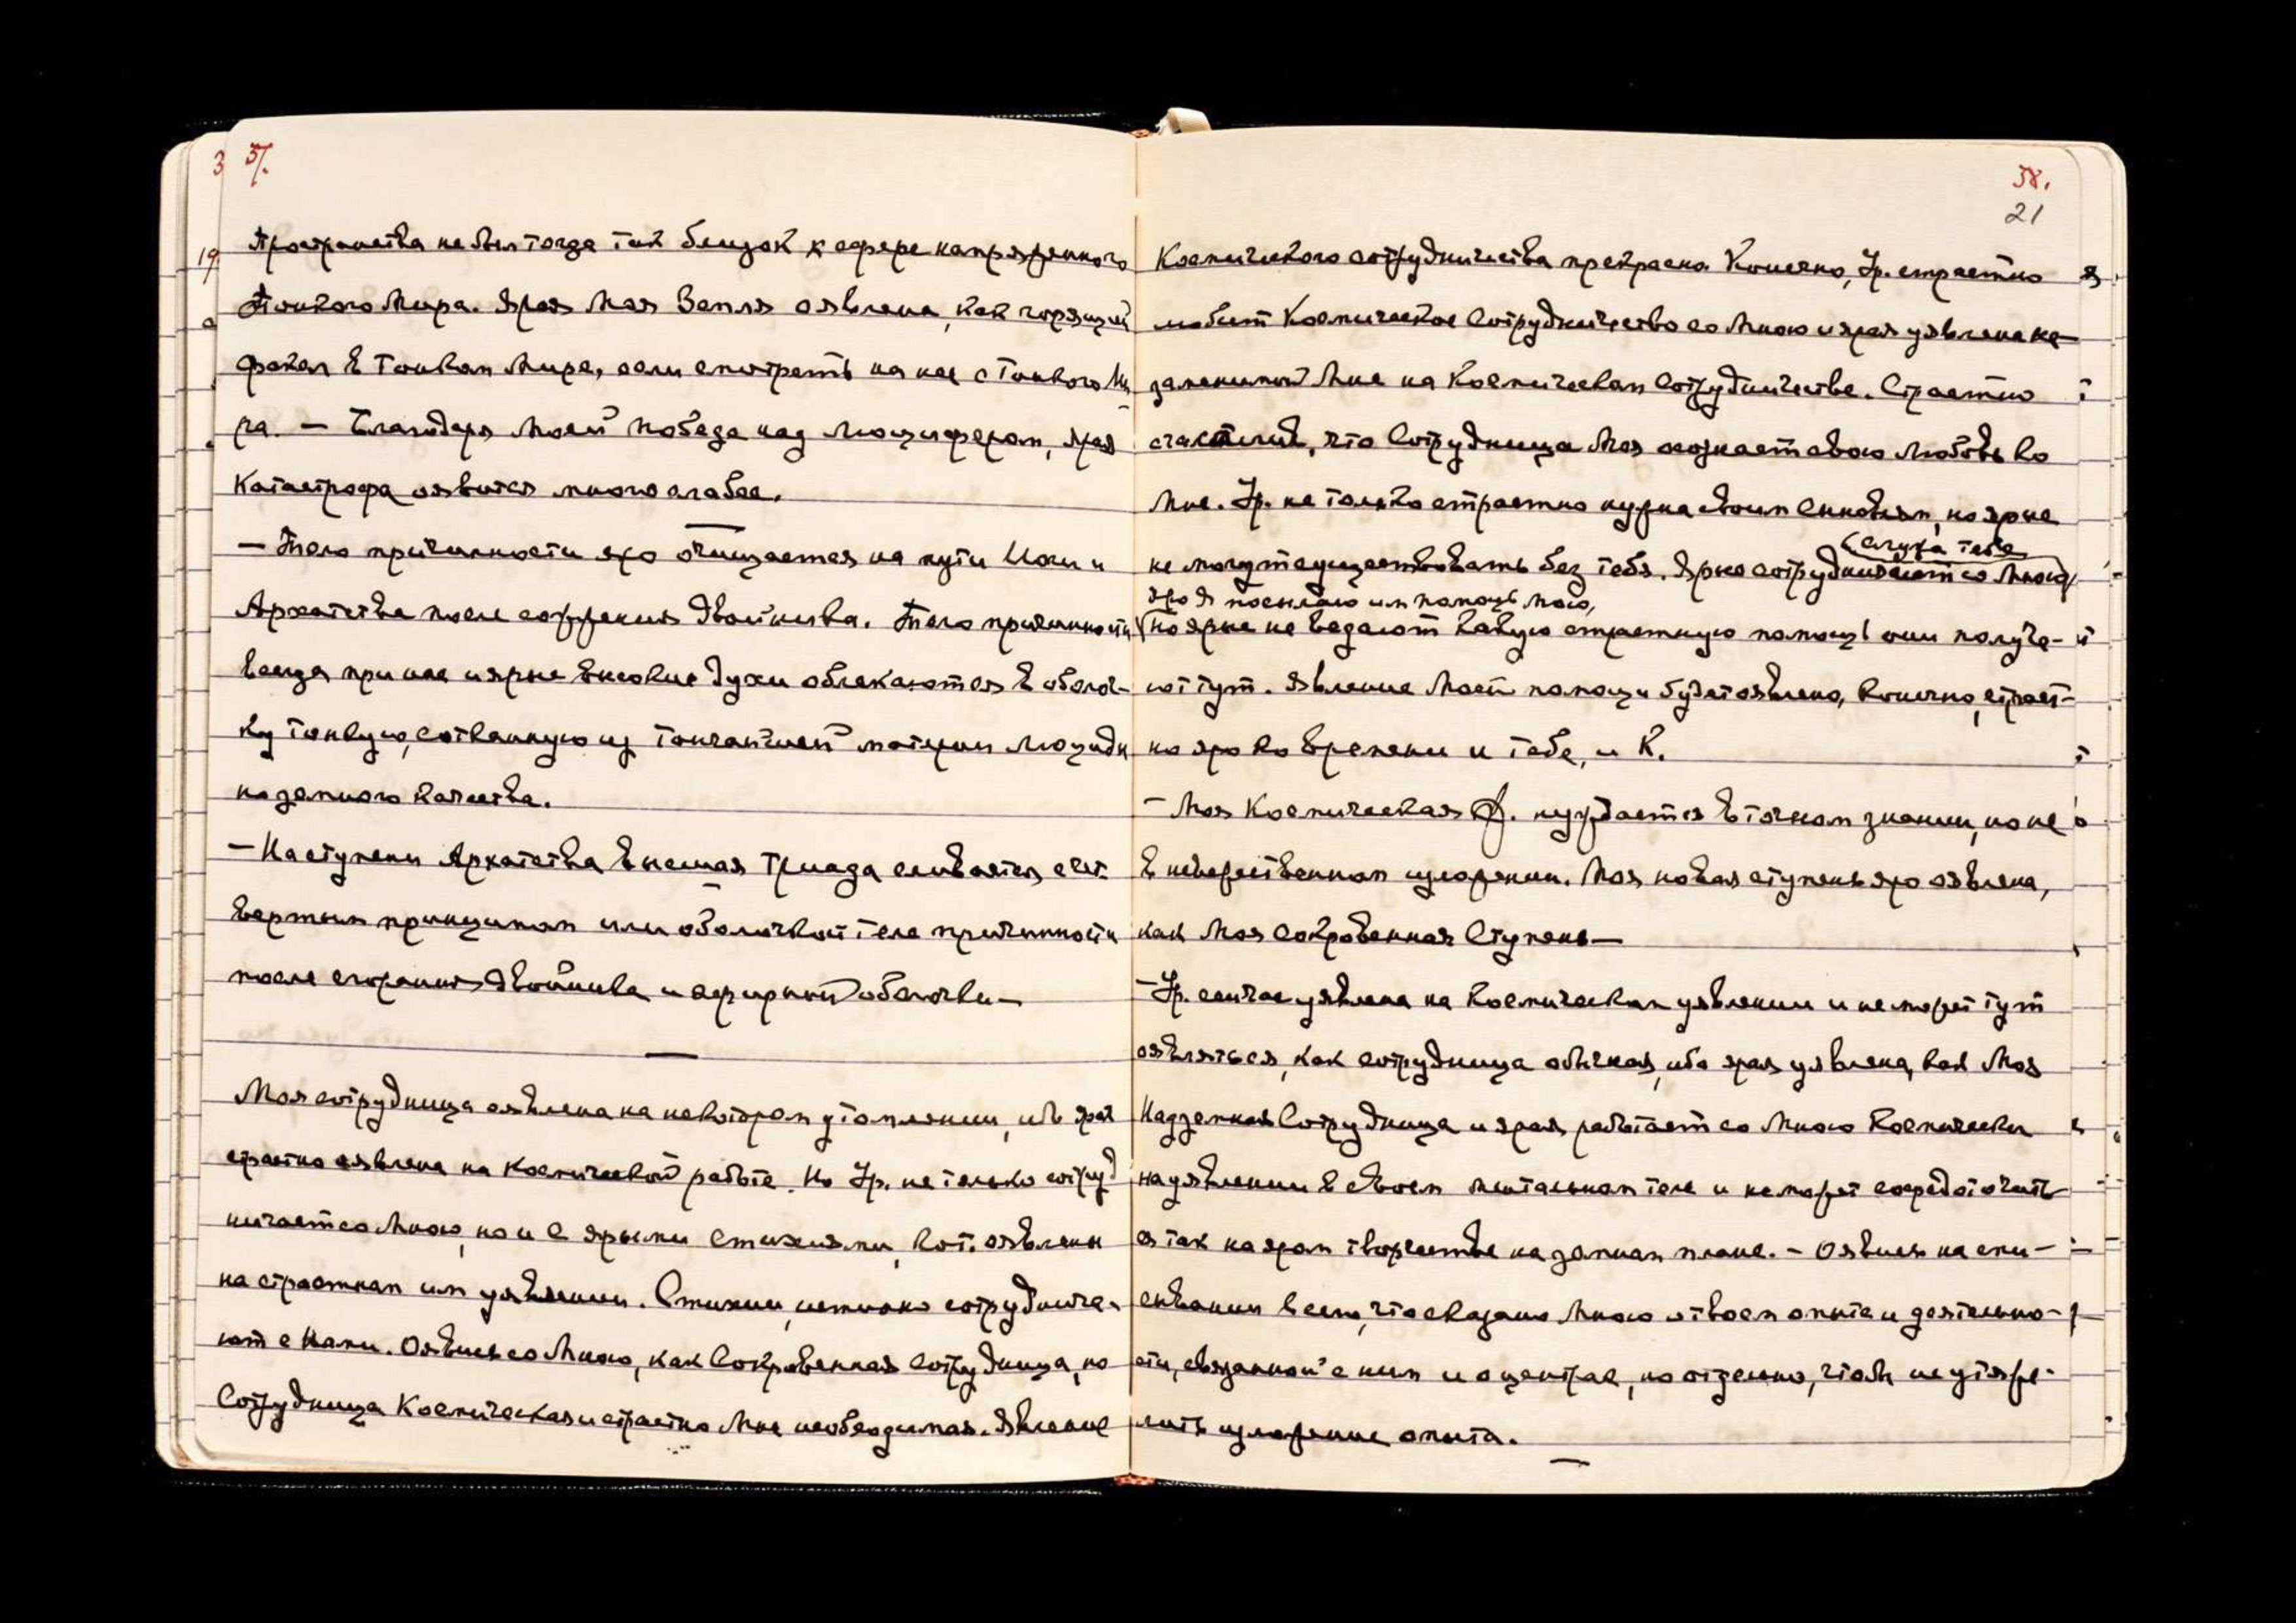 37.
Пространства не был тогда так близок к сфере напряженного
Тонкого Мира. Ярая Моя Земля оявлена, как горящий
факел в Тонком Мире, если смотреть на нее с Тонкого Ми
ра. — Благодаря Моей победе над Люцифером, ярая
катастрофа оявится много слабее.
— Тело причинности яро очищается на пути Йоги и
Архатства после сожжения двойника. Тело причинности
всегда при нас и ярые высокие духи облекаются в оболоч-
ку тонкую, сотканную из тончайшей материи Люциды
надземного качества.
— На ступени Архатства высшая Триада сливается с чет-
вертым принципом или оболочкой тела причинности
после сгорания двойника и эфирной оболочки —
Моя сотрудница оявлена на некотором утомлении, ибо ярая
страстно оявлена на космической работе. Но Ур. не только сотруд
ничает со Мною, но и с ярыми стихиями, кот. оявлены
на страстном им уявлении. Стихии, истинно сотруднича-
ют с Нами. Оявись со Мною, как Сокровенная Сотрудница, но
Сотрудница Космическая и страстно Мне необходимая. Явление
38.
21
Космического сотрудничества прекрасно. Конечно, Ур. страстно
любит Космическое Сотрудничество со Мною и ярая уявлена не-
заменимой Мне на Космическом Сотрудничестве. Страстно
счастлив, что Сотрудница Моя осознает свою любовь ко
Мне. Ур. не только страстно нужна своим сыновьям, но ярые
служа тебе
не могут существовать без тебя. Ярко сотрудничают со Мною,
яро Я посылаю им помощь мою,
но ярые не ведают какую страстную помощь они получа-
ют тут. Явление Моей помощи будет оявлено, конечно, страст-
но яро ко времени и тебе, и К.
— Моя Космическая Ф. нуждается в точном знании, но не
в невежественном изложении. Моя новая ступень яро оявлена,
как Моя сокровенная Ступень —
— Ур. сейчас уявлена на Космическом уявлении и не может тут
оявляться, как сотрудница обычная, ибо ярая уявлена, как Моя
Надземная Сотрудница и ярая работает со Мною Космически
на уявлении в своем ментальном теле и не может сосредоточить
ся так на яром творчестве на земном плане. — Оявись на спи-
сывании всего, что сказано Мною о твоем опыте и деятельно-
сти, связанной с ним и о центрах, но отдельно, чтобы не утяже-
лить изложение опыта.